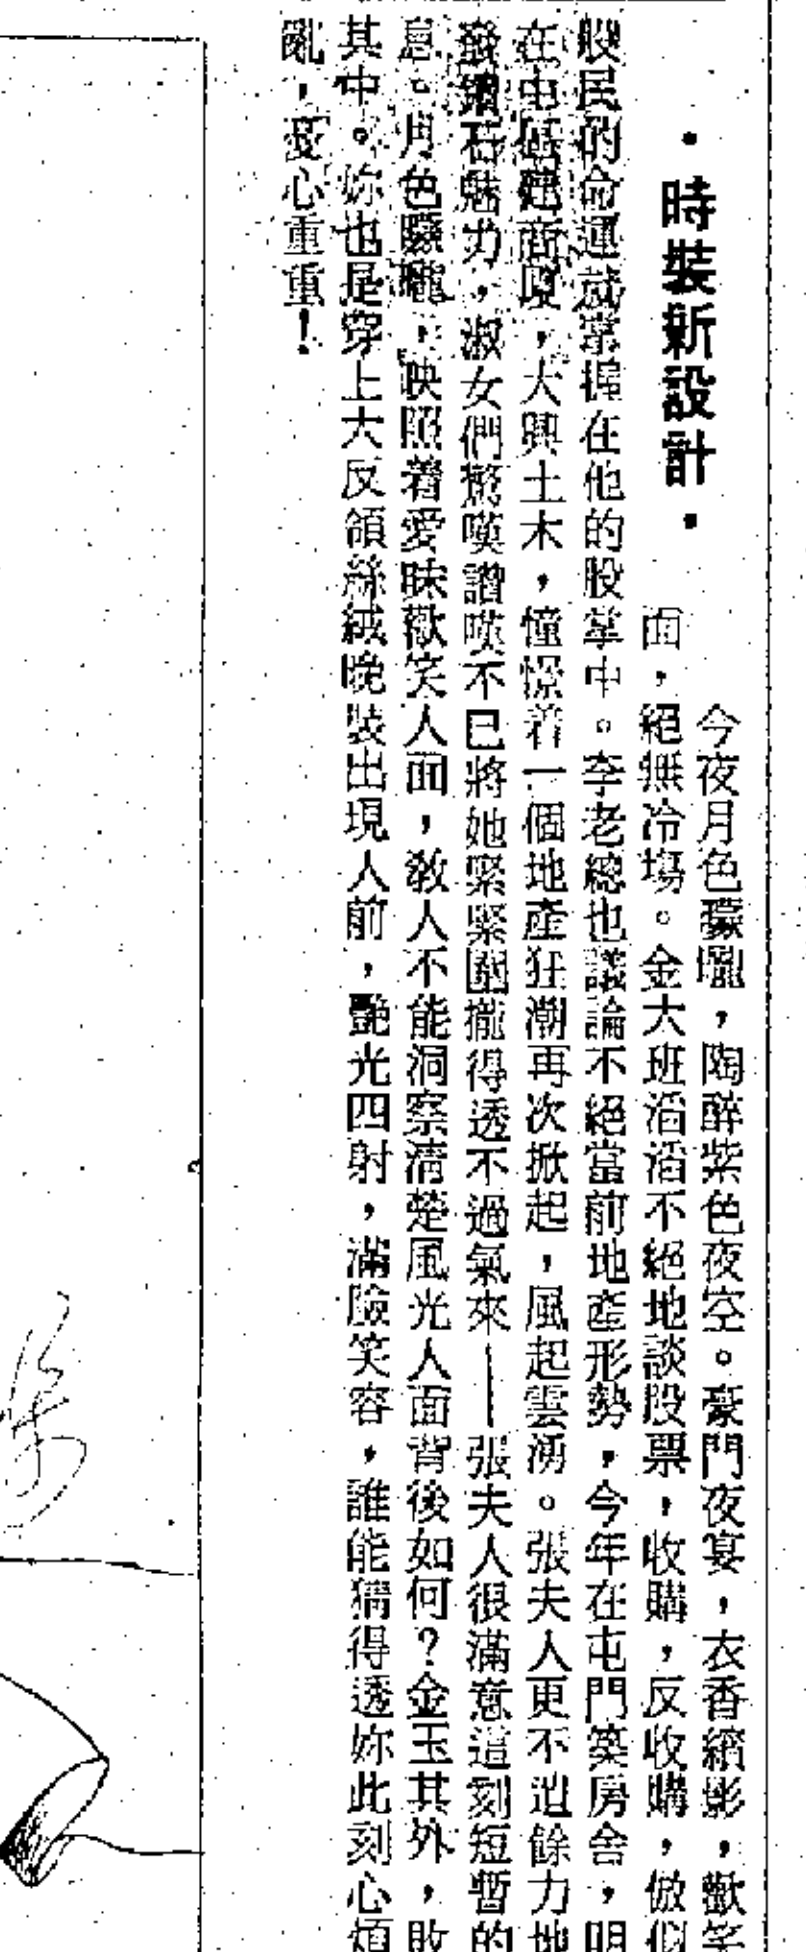 ・時裝新設計・
今夜月色朦朧，陶醉紫色夜空。豪門夜宴，衣香繽影，歡笑
面，絕無冷場。金大班滔滔不絕地談股票，收購，反收購，倣似
般民的命運就掌握在他的股掌中。李老總也議論不絕當前地產形勢，今年在屯門築房舍，明
在中區建商廈，大興土木，憧憬着一個地產狂潮再次掀起，風起雲湧。張夫人更不遺餘力地
鑽石魅力，淑女們驚嘆讚嘆不已將她緊緊圍攏得透不過氣來——張夫人很滿意這刻短暫的
息。月色朦朧，映照着愛昧歡笑人面，教人不能洞察清楚風光人面背後如何？金玉其外，敗
其中。妳也是穿上大反領絲絨晚裝出現人前，艷光四射，滿臉笑容，誰能猜得透妳此刻心煩
亂，憂心重重！